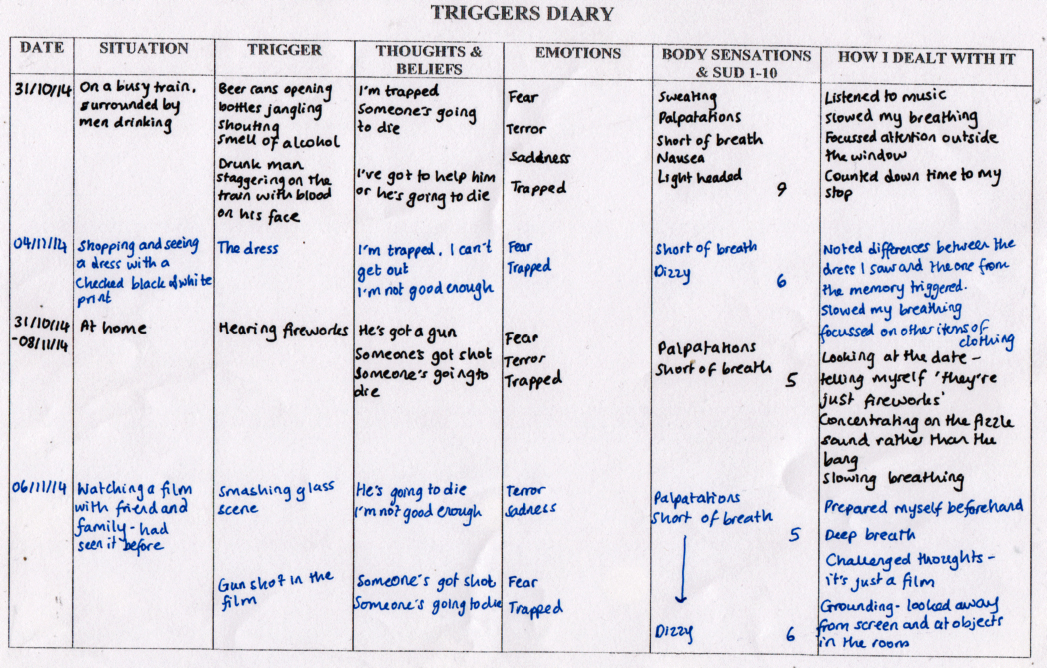 TRIGGERS DIARY
DATE
SITUATION
TRIGGER
THOUGHTS &
BELIEFS
EMOTIONS
BODY SENSATIONS
& SUD 1-10
HOW I DEALT WITH IT
31/10/14
On a busy train,
surrounded by
men drinking
Beer cans opening
bottles jangling
shouting
smell of alcohol
Drunk man
staggering on the
train with blood
on his face
I'm trapped
Someone's going
to die
I've got to help him
or he's going to die
Fear
Terror
Saddness
Trapped
Sweating
Palpatations
Short of breath
Nausea
Light headed
9
Listened to music
Slowed my breathing
Focussed attention outside
the window
Counted down time to my
stop
04/11/14
Shopping and seeing
a dress with a
Checked black & white
print
The dress
I'm trapped, I can't
get out
I'm not good enough
Fear
Trapped
Short of breath
Dizzy
6
Noted differences between the
dress I saw and the one from
the memory triggered.
Slowed my breathing
focussed on other items of
clothing
31/10/14
-08/11/14
At home
Hearing fireworks
He's got a gun
Someone's got shot
Someone's going to
die
Fear
Terror
Trapped
Palpatations
Short of breath
5
Looking at the date -
telling myself 'they're
just fireworks'
Concentrating on the fizzle
sound rather than the
bang
Slowing breathing
06/11/14
Watching a film
with friend and
family - had
seen it before
Smashing glass
scene
He's going to die
I'm not good enough
Terror
Sadness
Palpatations
Short of breath
5
Prepared myself beforehand
Deep breath
Challenged thoughts -
it's just a film
Gun shot in the
film
Someone's got shot
Someone's going to die
Fear
Trapped
Dizzy
6
Grounding - looked away
from screen and at objects
in the room